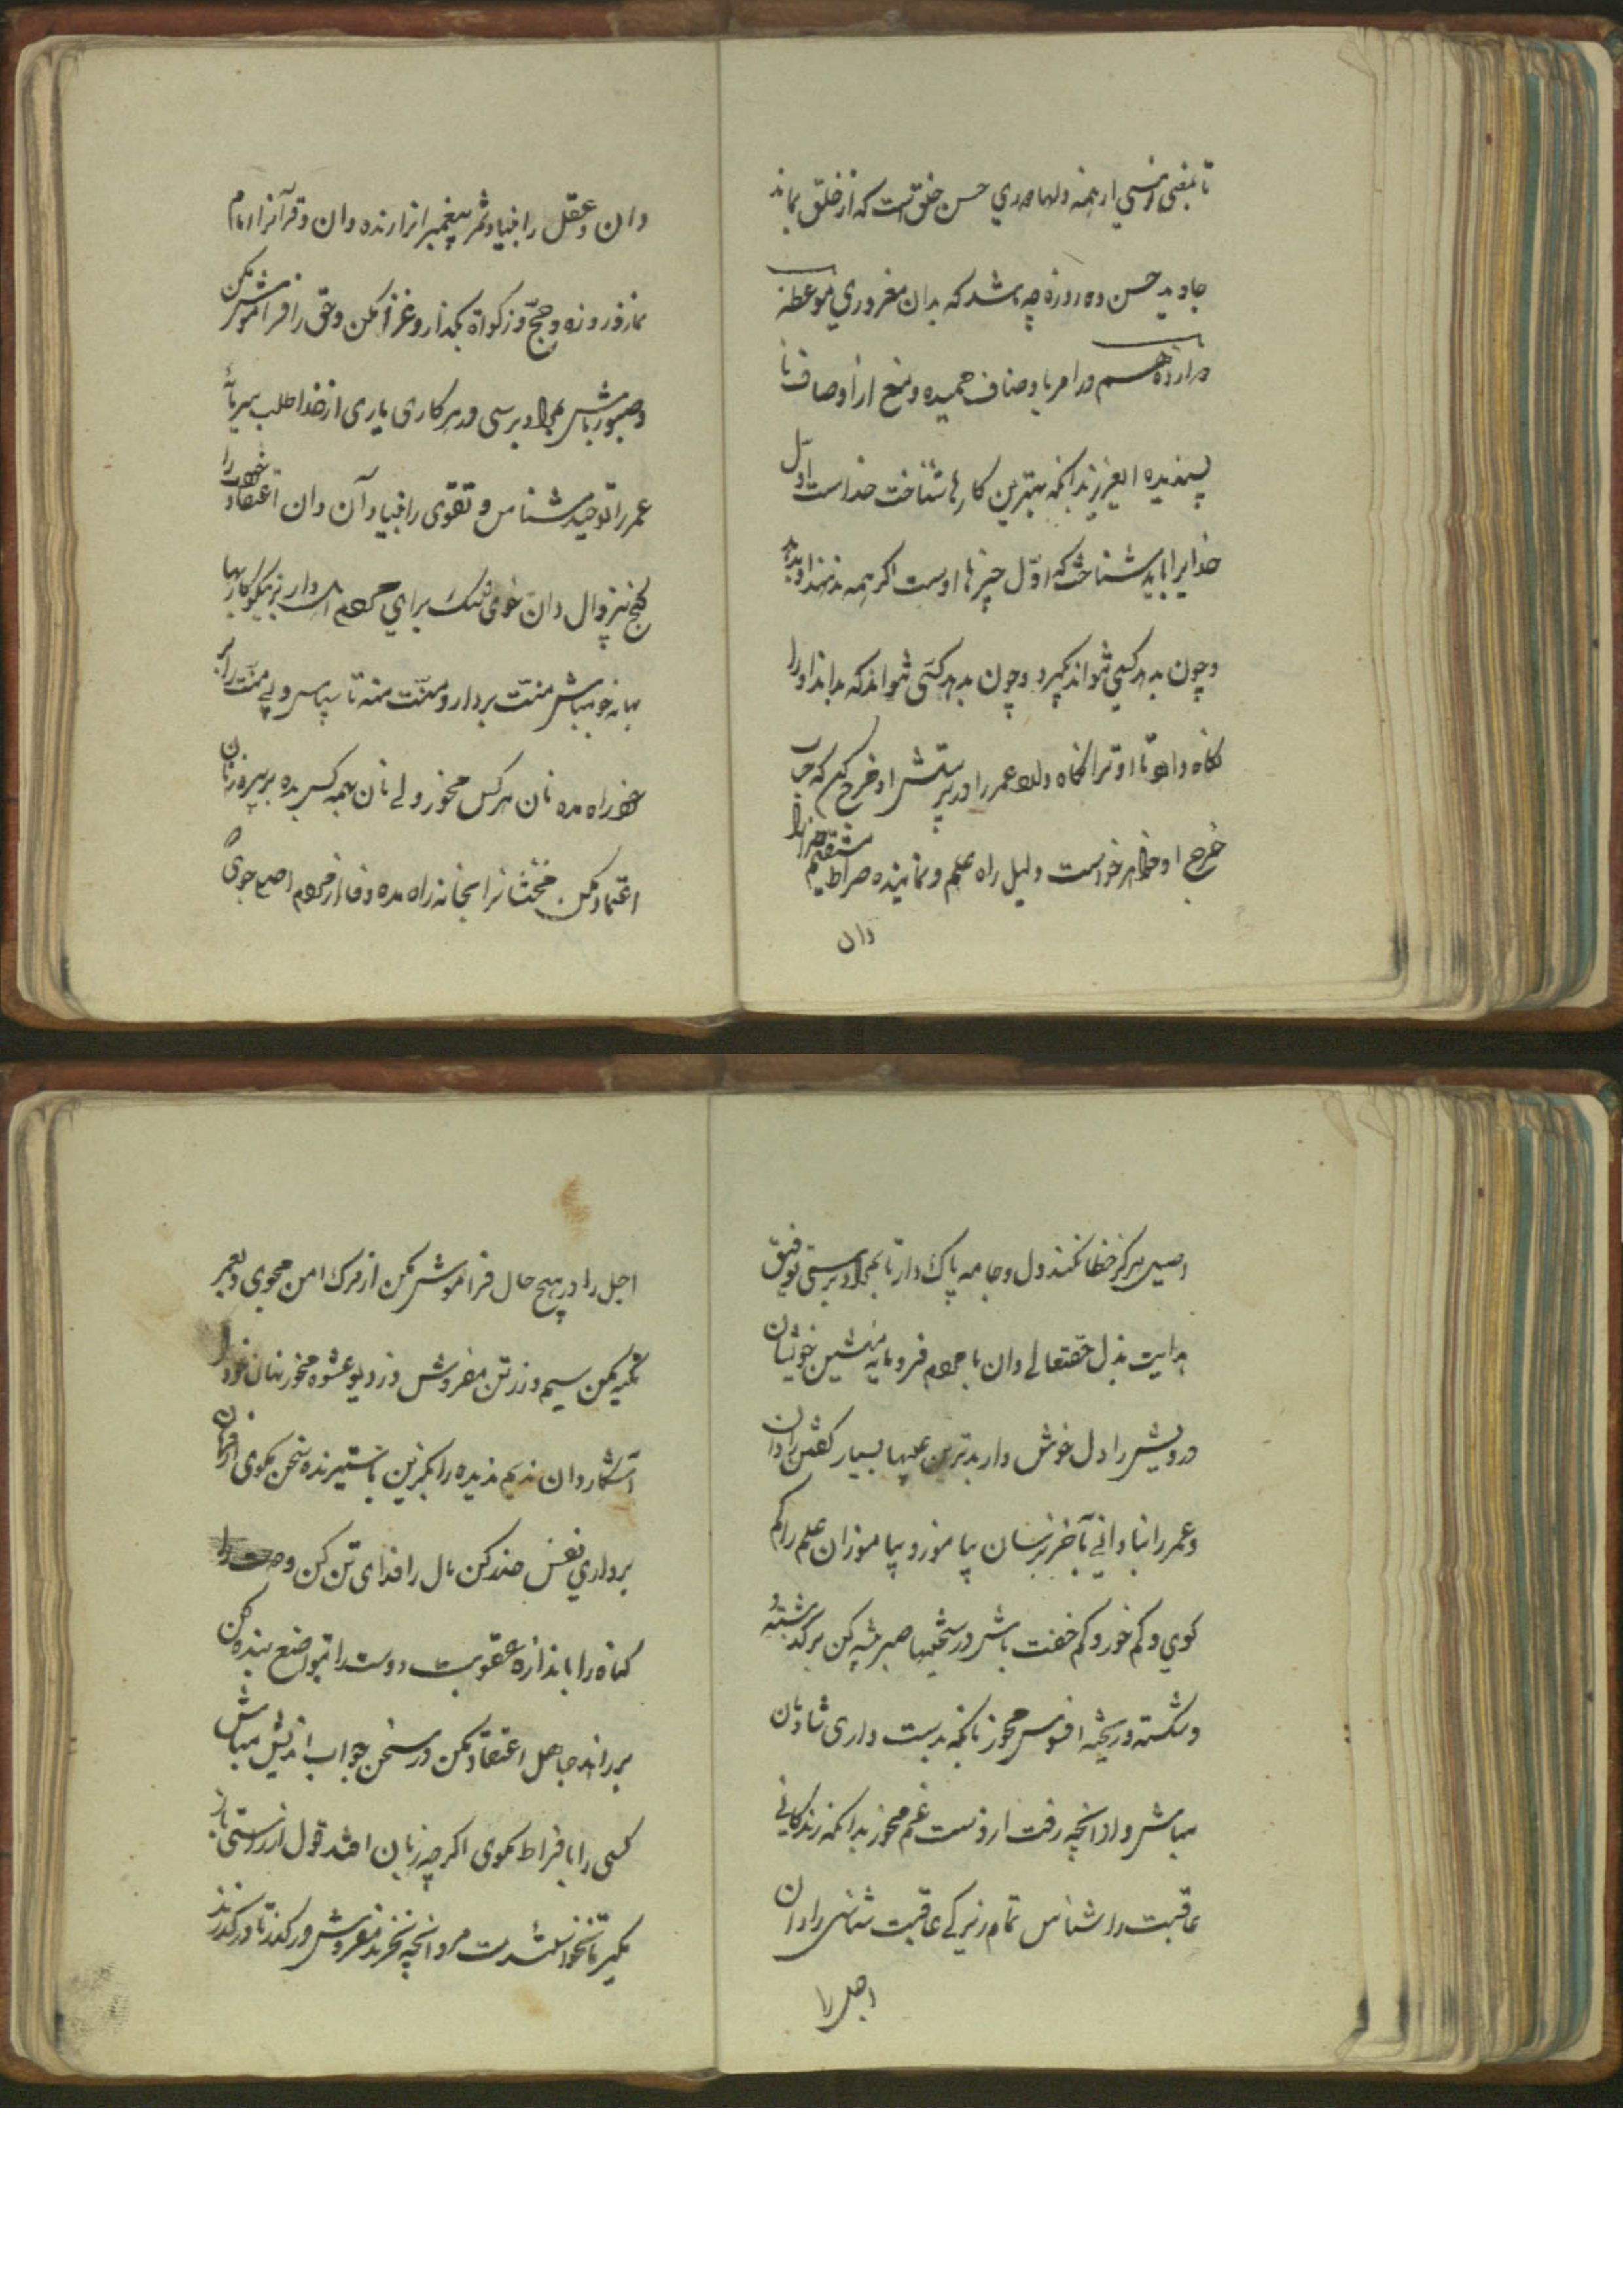 تا بمغنی انسی از همه دلها مهری حسن خلق است که از خلق بماند
جاوید حسن ده روزه چه باشد که بدان مغروری موعظهٔ
در امر باوصاف حمیده و منع از اوصاف نا
پسندیده ای عزیز بدانکه بهترین کارها شناخت خداست اول
خدایرا باید شناخت که اوّل چیزها اوست اگر همه
و چون بدهد کسی نتواند که بگیرد و چون بگیرد کسی نتواند که بدهد او را
نگاه دار تا او ترا نگاه دارد عمر را در پرستش او خرج کن که
خرج او دلیل راه علم و نماینده صراط مستقیم
دان
دان و عقل را بنیاد شمر پیغمبرانرا زنده دان و قرآنرا امام
نماز و روزه و حجّ و زکواة بگذار و غزا بکن و حق را فراموش مکن
و صبور باش بمراد برسی و در هر کاری یاری از خدا طلب
عمر را توحید شناس و تقوی را بنیاد آن دان اعتقاد خود را
گنج بیزوال دان خوی نیک برای مردم دار بر نیکوکاریها
بهانه جو مباش منّت بردار و منّت منه تا سپاس
خود راه مده نان هر کس مخور ولی نان بهمه کس بده بر پیره زنان
اعتماد مکن مخنّثانرا بخانه راه مده وفا از مردم اصیل جوی که
اصیل هرگز خطا نکند دل و جامه پاک دار تا بمراد برستی توفیق
هدایت بذل حقتعالی دان با مردم فرومایه منشین خویشان
درویش را دل خوش دار بدترین عیبها بسیار گفتن را دان
و عمر را بنادانی بآخر مرسان بیاموز و بیاموزان علم را کم
گوی و کم خور و کم خفت باش در سختیها صبر پیشه کن بر گذشته و
و شکسته و ریخته افسوس مخور بآنکه بدست داری شادمان
مباش و از آنچه رفت از دست غم مخور بدانکه زندگانی
عاقبت را شناس تمام زیرکی عاقبت شناسی را دان
اجل را
اجل را در هیچ حال فراموش مکن از مرگ ایمن مجوی و بعمر
تکیه مکن سیم و زر تن مفروش و ز دیو عشوه مخور نهان خود را
آشکار دان ندیم ندیده را مگزین با ستیزنده سخن مگوی از
برداری نفس حذر کن مال را فدای تن کن
گناه را باندازه عقوبت دوست را بتواضع بنده کن
بر راند جاهل اعتقاد مکن در سخن جواب اندیش مباش
کسی را بافراط مگوی اگر چه زیان افتد قول از راستی باز
مگیر تا نخوانندت مرو آنچه نخرند مفروش درگذر تا درگذرند